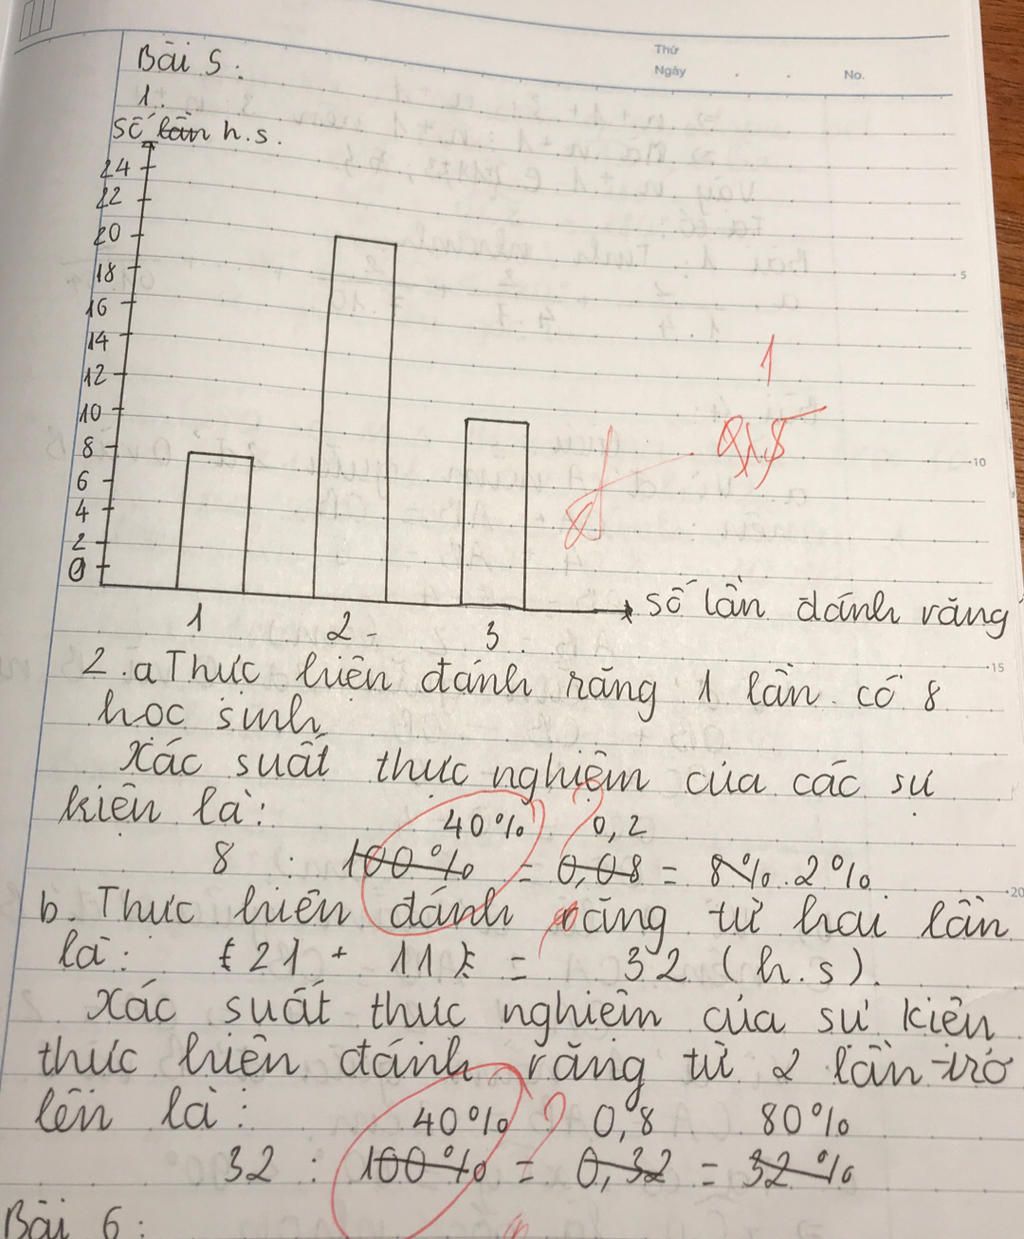 Thứ
Ngày . . No.
Bài 5:
1.
số lần h.s.
24
22
20
18
16
14
12
10
8
6
4
2
0
5
10
15
20
1
0,5
1 2 3
số lần đánh răng
2. a Thực hiện đánh răng 1 lần có 8
học sinh
Xác suất thực nghiệm của các sự
kiện là:
40% 0,2
8 : 100% = 0,08 = 8% 2%
b. Thực hiện đánh răng từ hai lần
là: 21 + 11 = 32 (h.s).
Xác suất thực nghiệm của sự kiện
thực hiện đánh răng từ 2 lần trở
lên là:
40% ? 0,8 80%
32 : 100% = 0,32 = 32%
Bài 6: